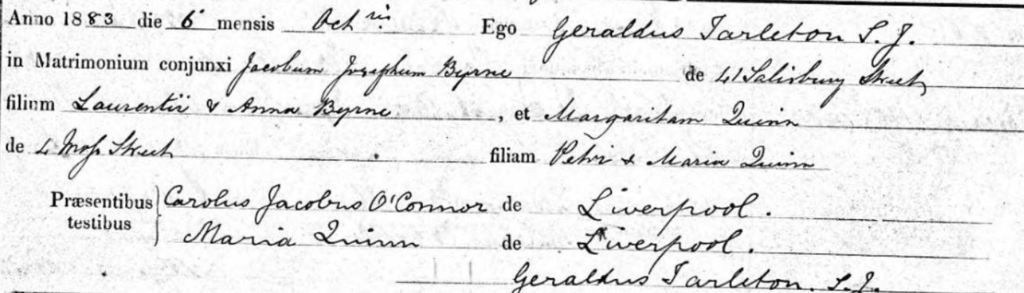 Anno 1883 die 6 mensis Octris Ego Geraldus Tarleton S.J.
in Matrimonium conjunxi Jacobum Josephum Byrne de 41 Salisbury Street
filium Laurentii & Anna Byrne, et Margaritam Quinn
de 4 Moss Street filiam Petri & Maria Quinn
Præsentibus testibus } Carolus Jacobus O'Connor de Liverpool.
Maria Quinn de Liverpool.
Geraldus Tarleton, S.J.